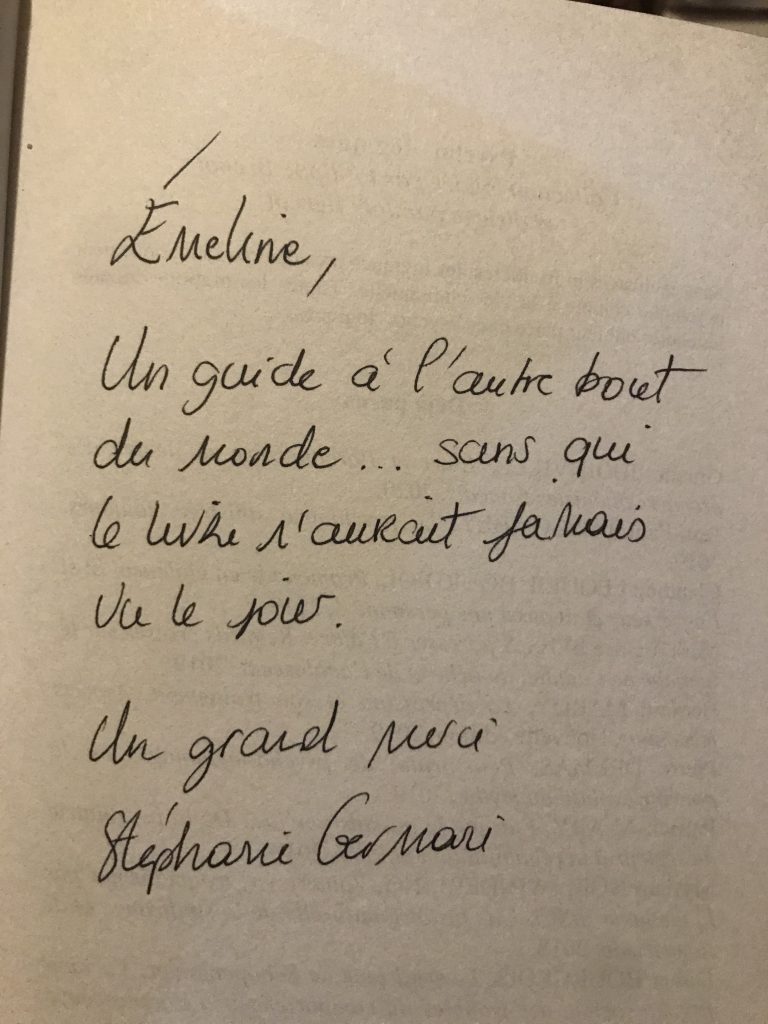 Émeline,
Un guide à l'autre bout
du monde... sans qui
le livre n'aurait jamais
vu le jour.
Un grand merci
Stéphanie Germani